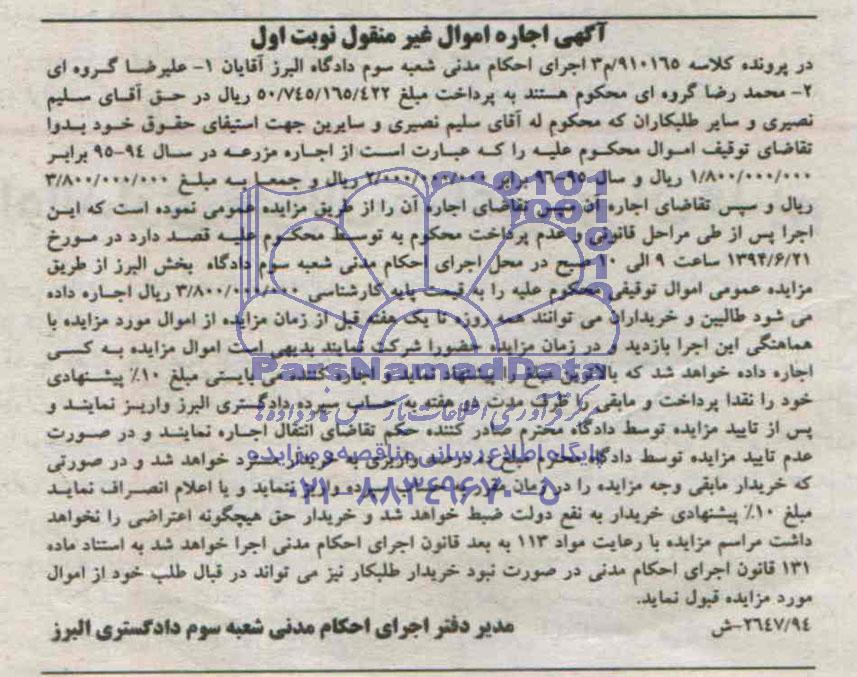 آگهی اجاره اموال غیر منقول نوبت اول
در پرونده کلاسه ۹۱۰۱۶۵/م۳ اجرای احکام مدنی شعبه سوم دادگاه البرز آقایان ۱- علیرضا گروه ای
۲- محمد رضا گروه ای محکوم هستند به پرداخت مبلغ ۵۰/۷۴۵/۱۶۵/۴۲۲ ریال در حق آقای سلیم
نصیری و سایر طلبکاران که محکوم له آقای سلیم نصیری و سایرین جهت استیفای حقوق خود بدوا
تقاضای توقیف اموال محکوم علیه را که عبارت است از اجاره مزرعه در سال ۹۴-۹۵ برابر
۱/۸۰۰/۰۰۰/۰۰۰ ریال و سال ۹۵-۹۶ برابر ۲/۰۰۰/۰۰۰/۰۰۰ ریال و جمعا به مبلغ ۳/۸۰۰/۰۰۰/۰۰۰
ریال و سپس تقاضای اجاره آن سپس تقاضای اجاره آن را از طریق مزایده عمومی نموده است که این
اجرا پس از طی مراحل قانونی و عدم پرداخت محکوم به توسط محکوم علیه قصد دارد در مورخ
۱۳۹۴/۶/۲۱ ساعت ۹ الی ۱۰ صبح در محل اجرای احکام مدنی شعبه سوم دادگاه بخش البرز از طریق
مزایده عمومی اموال توقیفی محکوم علیه را به قیمت پایه کارشناسی ۳/۸۰۰/۰۰۰/۰۰۰ ریال اجاره داده
می شود طالبین و خریداران می توانند همه روزه تا یک هفته قبل از زمان مزایده از اموال مورد مزایده با
هماهنگی این اجرا بازدید و در زمان مزایده حضورا شرکت نمایند بدیهی است اموال مزایده به کسی
اجاره داده خواهد شد که بالاترین مبلغ را پیشنهاد نماید و اجاره کننده می بایستی مبلغ ۱۰٪ پیشنهادی
خود را نقدا پرداخت و مابقی را ظرف مدت دو هفته به حساب سپرده دادگستری البرز واریز نمایند و
پس از تایید مزایده توسط دادگاه محترم صادر کننده حکم تقاضای انتقال اجاره نمایند و در صورت
عدم تایید مزایده توسط دادگاه محترم مبلغ ده درصد واریزی به خریدار مسترد خواهد شد و در صورتی
که خریدار مابقی وجه مزایده را در زمان مقرر به حساب سپرده واریز ننماید و یا اعلام انصراف نماید
مبلغ ۱۰٪ پیشنهادی خریدار به نفع دولت ضبط خواهد شد و خریدار حق هیچگونه اعتراضی را نخواهد
داشت مراسم مزایده با رعایت مواد ۱۱۳ به بعد قانون اجرای احکام مدنی اجرا خواهد شد به استناد ماده
۱۳۱ قانون اجرای احکام مدنی در صورت نبود خریدار طلبکار نیز می تواند در قبال طلب خود از اموال
مورد مزایده قبول نماید.
۲۶۴۷/۹۴-ش
مدیر دفتر اجرای احکام مدنی شعبه سوم دادگستری البرز
ParsNamadData
مرکز فرآوری اطلاعات پارس نماد داده ها
پایگاه اطلاع رسانی مناقصه و مزایده
۰۲۱-۸۸۳۴۹۶۷۰-۵